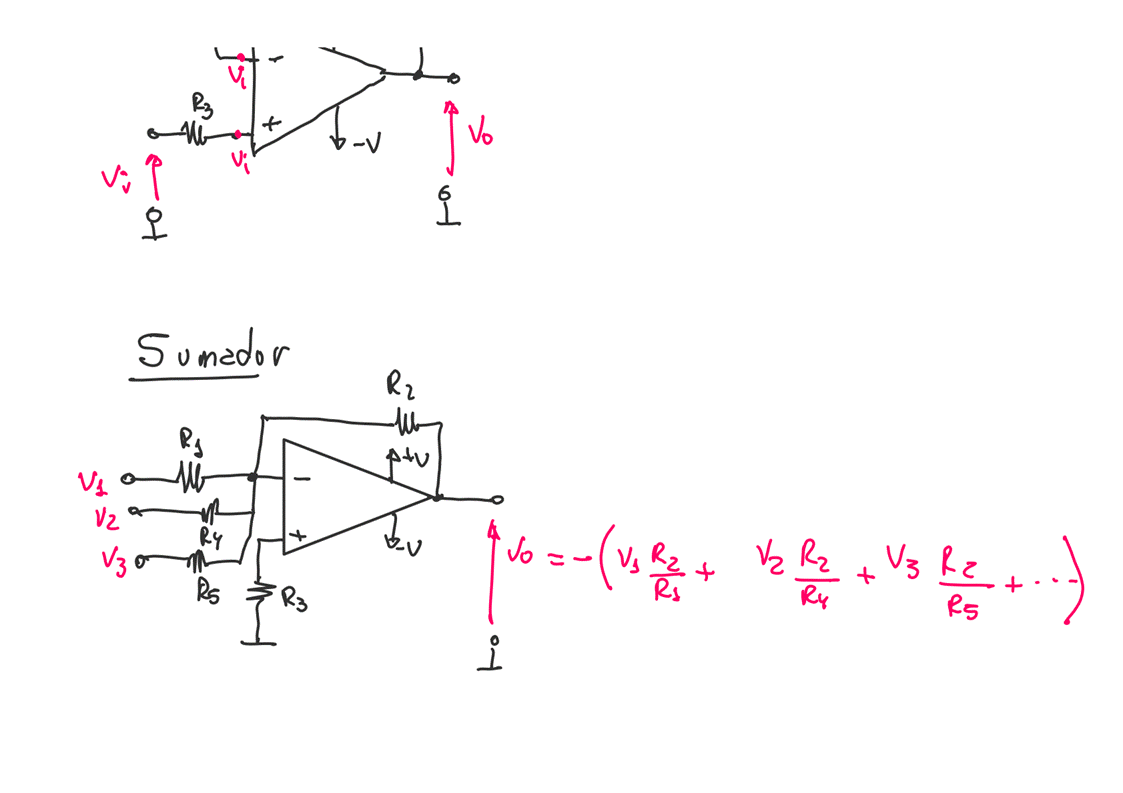 -
Vi
R3
+
-V
Vo
Vi
Vi
Sumador
R2
R1
+V
V1
-
V2
R4
+
-V
V3
R5
R3
Vo = -(V1 R2/R1 + V2 R2/R4 + V3 R2/R5 + ...)